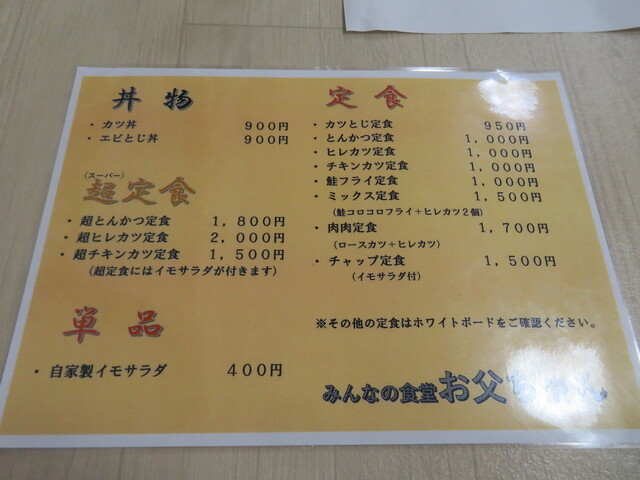 丼物
・カツ丼 900円
・エビとじ丼 900円
(スーパー)
超定食
・超とんかつ定食 1,800円
・超ヒレカツ定食 2,000円
・超チキンカツ定食 1,500円
(超定食にはイモサラダが付きます)
単品
・自家製イモサラダ 400円
定食
・カツとじ定食 950円
・とんかつ定食 1,000円
・ヒレカツ定食 1,000円
・チキンカツ定食 1,000円
・鮭フライ定食 1,000円
・ミックス定食 1,500円
(鮭コロコロフライ+ヒレカツ2個)
・肉肉定食 1,700円
(ロースカツ+ヒレカツ)
・チャップ定食 1,500円
(イモサラダ付)
※その他の定食はホワイトボードをご確認ください。
みんなの食堂お父ちゃん